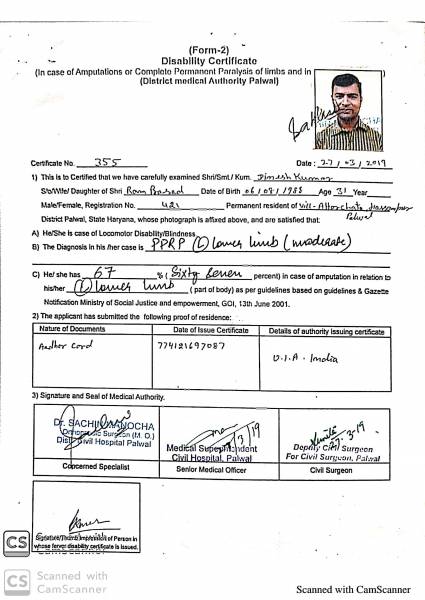 (Form-2)
Disability Certificate
(In case of Amputations or Complete Permanent Paralysis of limbs and in
(District medical Authority Palwal)
Certificate No. 355 Date : 27/03/2019
1) This is to Certified that we have carefully examined Shri/Smt./ Kum. Dinesh Kumar
S/o/Wife/ Daughter of Shri Ram Prasad Date of Birth 06/08/1988 Age 31 Year
Male/Female, Registration No. 421 Permanent resident of vill-
District Palwal, State Haryana, whose photograph is affixed above, and are satisfied that: Palwal
A) He/She is case of Locomotor Disability/Blindness
B) The Diagnosis in his /her case is PPRP (L) lower limb (moderate)
C) He/ she has 67 % ( Sixty Seven percent) in case of amputation in relation to
his/her (L) lower limb ( part of body) as per guidelines based on guidelines & Gazette
Notification Ministry of Social Justice and empowerment, GOI, 13th June 2001.
2) The applicant has submitted the following proof of residence:
Nature of Documents Date of Issue Certificate Details of authority issuing certificate
Aadhar Card 774121697087 U.I.A - India
3) Signature and Seal of Medical Authority.
Dr. SACHIN MANOCHA
Orthopaedic Surgeon (M. O.)
Distt. Civil Hospital Palwal
Concerned Specialist
Medical Superintendent
Civil Hospital, Palwal
Senior Medical Officer
27-3-19
Deputy Civil Surgeon
For Civil Surgeon, Palwal
Civil Surgeon
Signature/Thumb Impression of Person in
whose favour disability certificate is issued.
CS
CS Scanned with
CamScanner
Scanned with CamScanner